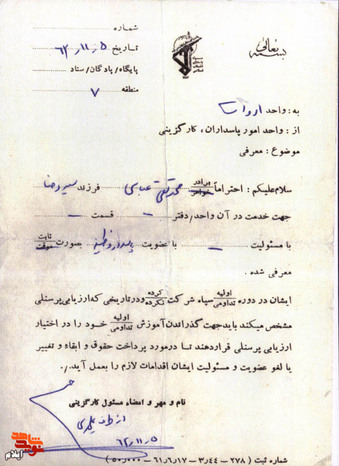 بسمه تعالی
شماره
تاریخ ۶۲/۱۱/۵
پایگاه/پادگان/ستاد
منطقه ۷
به: واحد
از: واحد امور پاسداران، کارگزینی
موضوع: معرفی
سلام علیکم: احتراماً برادر خواهر محمد تقی عباسی فرزند سید رضا
جهت خدمت در آن واحد/دفتر – قسمت –
با مسئولیت – با عضویت پاسدار وظیفه بصورت ثابت موقت
معرفی شده.
ایشان در دوره اولیه تداومی سپاه شرکت کرده نکرده و در تاریخی که ارزیابی پرسنلی
مشخص میکند باید جهت گذراندن آموزش اولیه تداومی خود را در اختیار
ارزیابی پرسنلی قرار دهند تا در مورد پرداخت حقوق و ابقاء و تغییر
یا لغو عضویت و مسئولیت ایشان اقدامات لازم را بعمل آید.
نام و مهر و امضاء مسئول کارگزینی
از طرف
۶۲/۱۱/۵
شماره ثبت (۲۷۸ – ۴۴–۳ – ۱۷–۶–۶۱ – ۵۰٫۰۰۰)
نوید شاهد
ایلام